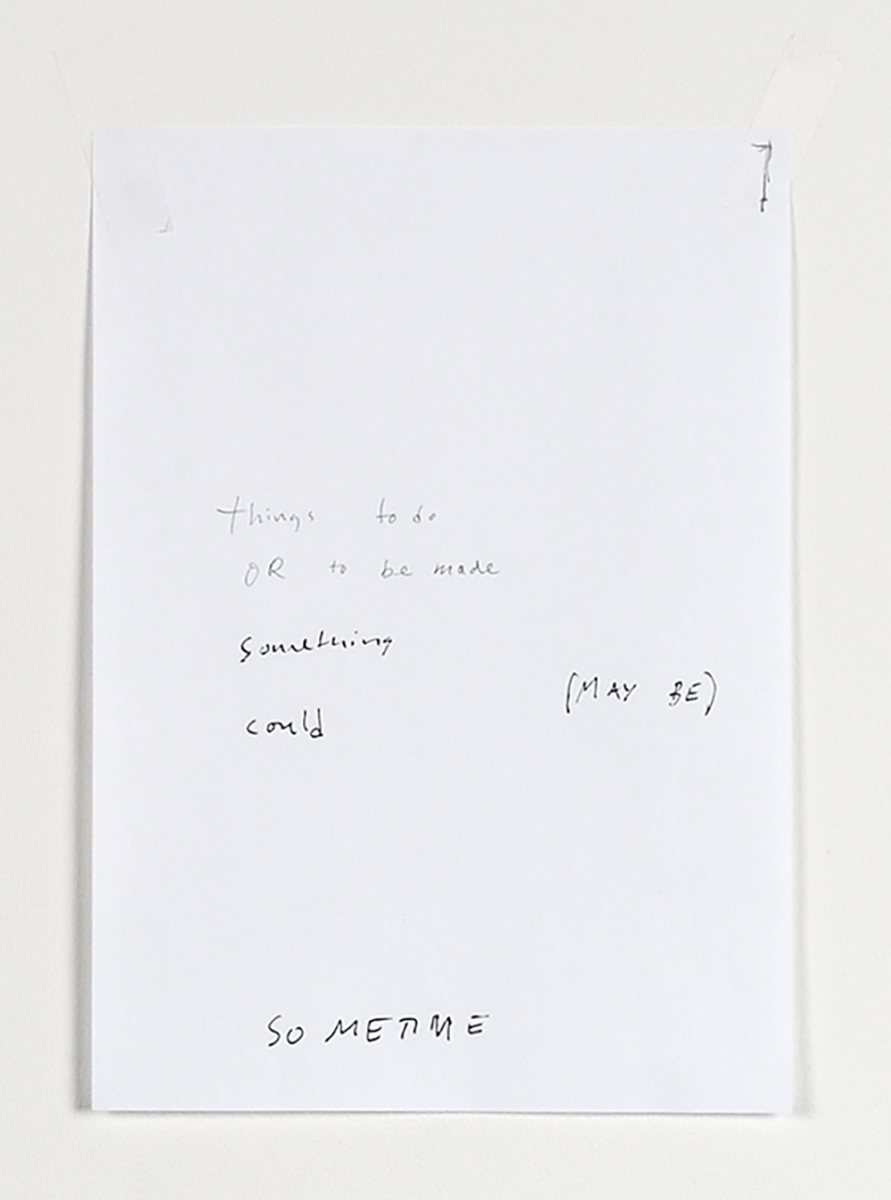 7
things to do
OR to be made
something
(MAY BE)
could
SOMETIME